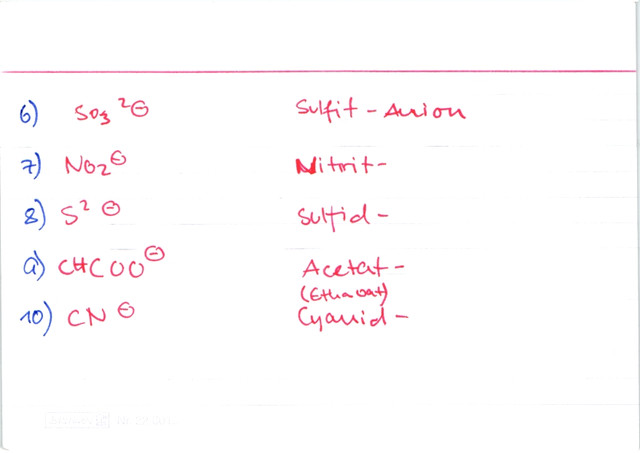 6) SO3 2⊖ Sulfit - Anion
7) NO2 ⊖ Nitrit -
8) S 2 ⊖ Sulfid -
9) CHCOO ⊖ Acetat -
(Ethanoat)
10) CN ⊖ Cyanid -